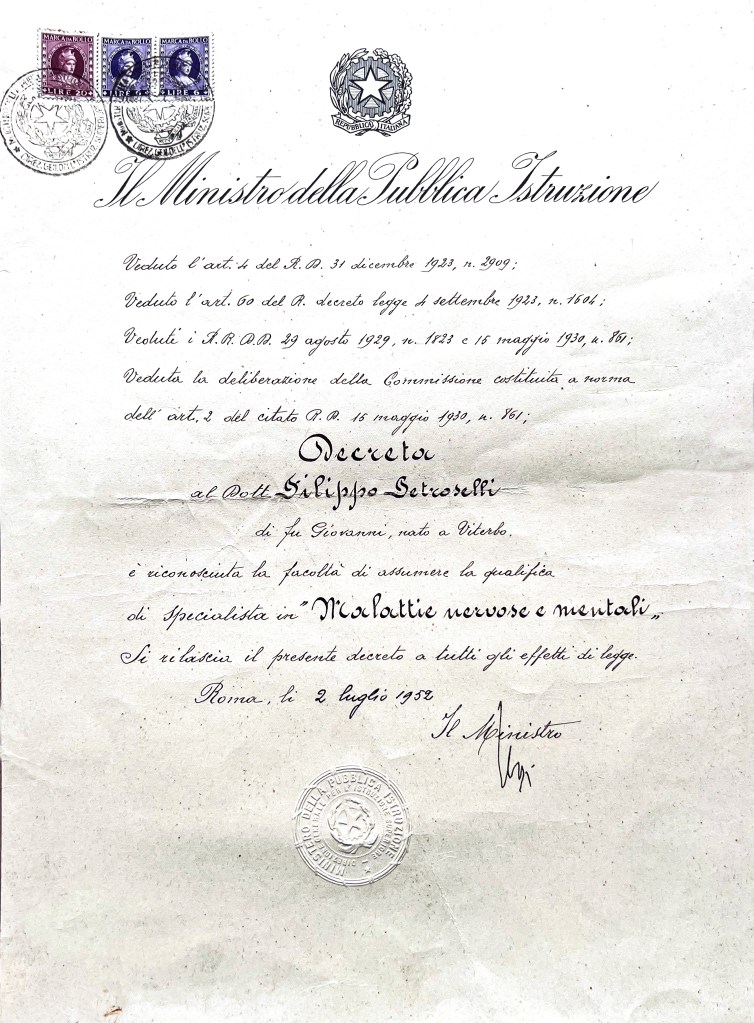 MARCA DA BOLLO MARCA DA BOLLO MARCA DA BOLLO
LIRE 20 LIRE 6 LIRE 6
REPUBBLICA ITALIANA
Il Ministro della Pubblica Istruzione
Veduto l'art. 4 del R. D. 31 dicembre 1923, n. 2909;
Veduto l'art. 60 del R. decreto legge 4 settembre 1923, n. 1604;
Veduti i R. R. D. D. 29 agosto 1929, n. 1823 e 15 maggio 1930, n. 861;
Veduta la deliberazione della Commissione costituita a norma
dell'art. 2 del citato R. D. 15 maggio 1930, n. 861;
Decreta
al Dott Filippo Petroselli
di fu Giovanni, nato a Viterbo.
è riconosciuta la facoltà di assumere la qualifica
di specialista in "Malattie nervose e mentali„
Si rilascia il presente decreto a tutti gli effetti di legge.
Roma, li 2 luglio 1952
Il Ministro
MINISTERO DELLA PUBBLICA ISTRUZIONE